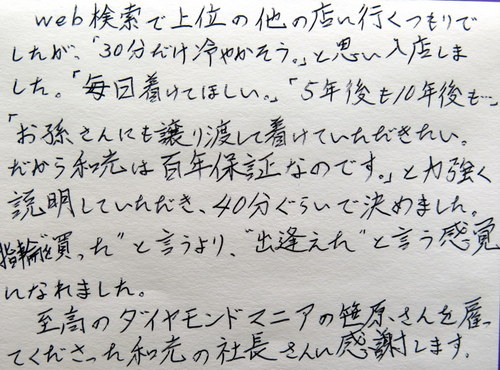 web検索で上位の他の店に行くつもりで
したが、「30分だけ冷やかそう。」と思い入店しま
した。「毎日着けてほしい。」「5年後も10年後も…」
「お孫さんにも譲り渡して着けていただきたい。
だから和光は百年保証なのです。」と力強く
説明していただき、40分ぐらいで決めました。
指輪を"買った"と言うより、"出逢えた"と言う感覚
になれました。
至高のダイヤモンドマニアの笹原さんを雇っ
てくださった和光の社長さんに感謝します。